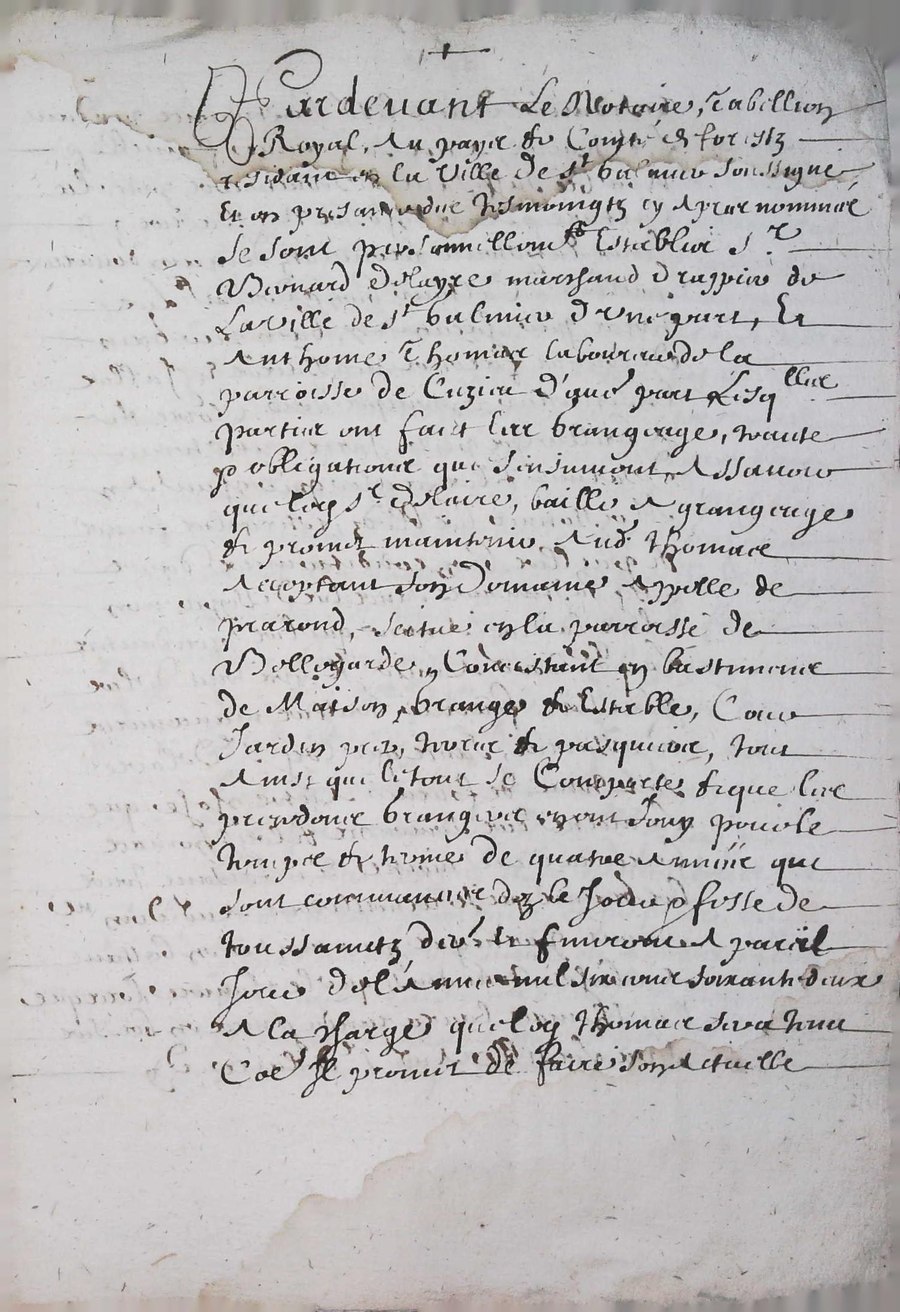 Pardevant Le Notaire, Tabellion
Royal, Au payz de Comté de forestz
residant en la Ville de st Galmier soussigné
Et en presance des tesmoingtz cy Apres nommez
Se sont personnellemt Establis sr
Delayre marchand drappier de
La Ville de st Galmier d'une part, Et
Anthoine Thomas laboureur de la
parroisse de Cuzieu d'autre part Lesqlles
parties ont faict les Grangeage, traicte
& obligations que s'ensuivent, Assavoir
que led sr Delaire, baille A grangeage
& promet maintenir Aud Thomas
Acceptant son Domaine Appellé de
, scitue en la parroisse de
Bellegarde, Concistant en bastimens
de Maison, Grange & Estable, Cour
Jardin prez, terres & pasquiers, tout
Ainsi que le tout se Comporte & que les
precedans Grangiers en ont Jouy pour le
temps & terme de quatre Années que
sont commancées dez le Jour & feste de
toussainctz & finiront A pareil
Jour de l'Année mil six cens soixante deux
A la charge que led Thomas sera tenu
Coe Il promet de faire son Actuelle